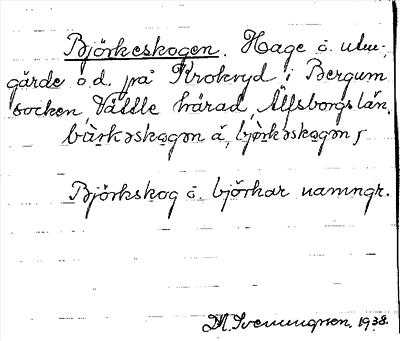 Björkeskogen. Hage o. utm-
gärde o d. på Krokryd i Bergum
socken, Vättle härad, Älfsborgs län.
bjö̀rkəskogən å, bjö̀rkəskogən,
Björkskog o. björkar namngr.
M. Svenungsson. 1938.